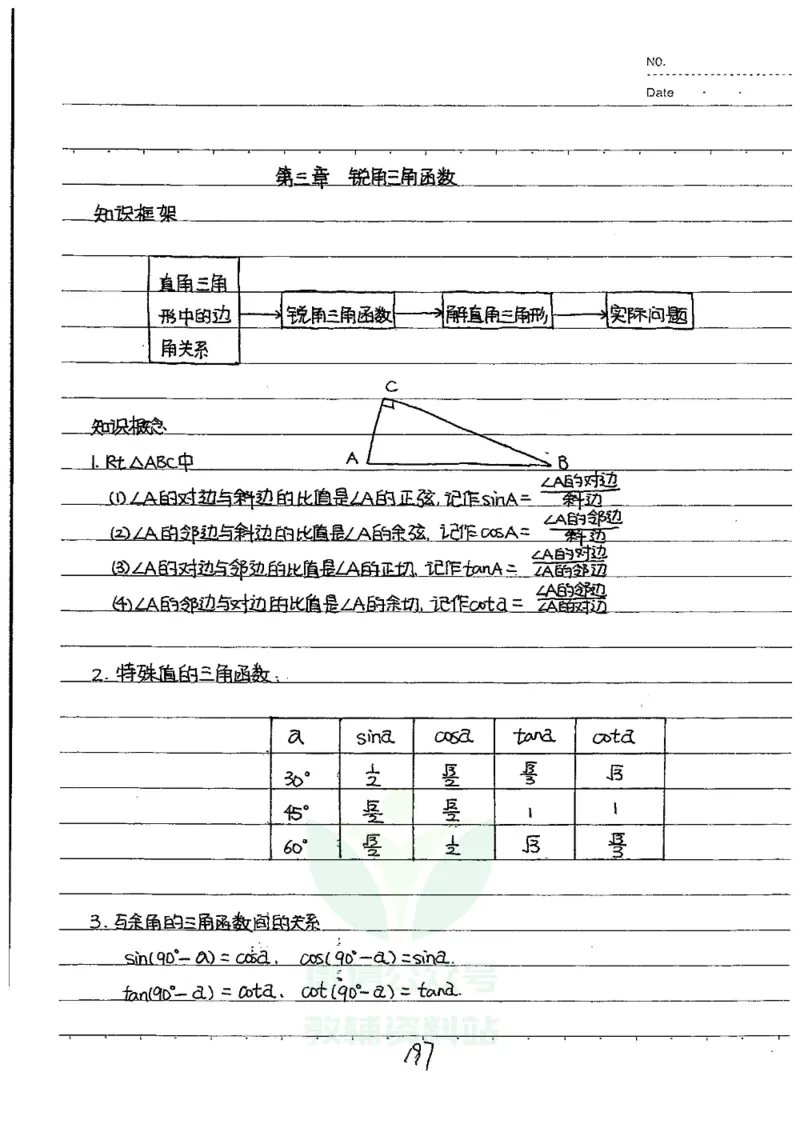 NO.
Date
第三章 锐角三角函数
知识框架
直角三角
形中的边
角关系
锐角三角函数
解直角三角形
实际问题
C
A
B
知识概念
1. Rt△ABC中
(1) ∠A的对边与斜边的比值是∠A的正弦, 记作 sinA = ∠A的对边/斜边
(2) ∠A的邻边与斜边的比值是∠A的余弦, 记作 cosA = ∠A的邻边/斜边
(3) ∠A的对边与邻边的比值是∠A的正切, 记作 tanA = ∠A的对边/∠A的邻边
(4) ∠A的邻边与对边的比值是∠A的余切, 记作 cota = ∠A的邻边/∠A的对边
2. 特殊值的三角函数:
a sina cosa tana cota
30° 1/2 √3/2 √3/3 √3
45° √2/2 √2/2 1 1
60° √3/2 1/2 √3 √3/3
3. 互余角的三角函数间的关系
sin(90°-a) = cosa, cos(90°-a) = sina.
tan(90°-a) = cota, cot(90°-a) = tana.
微信公众号
教辅资料站
187